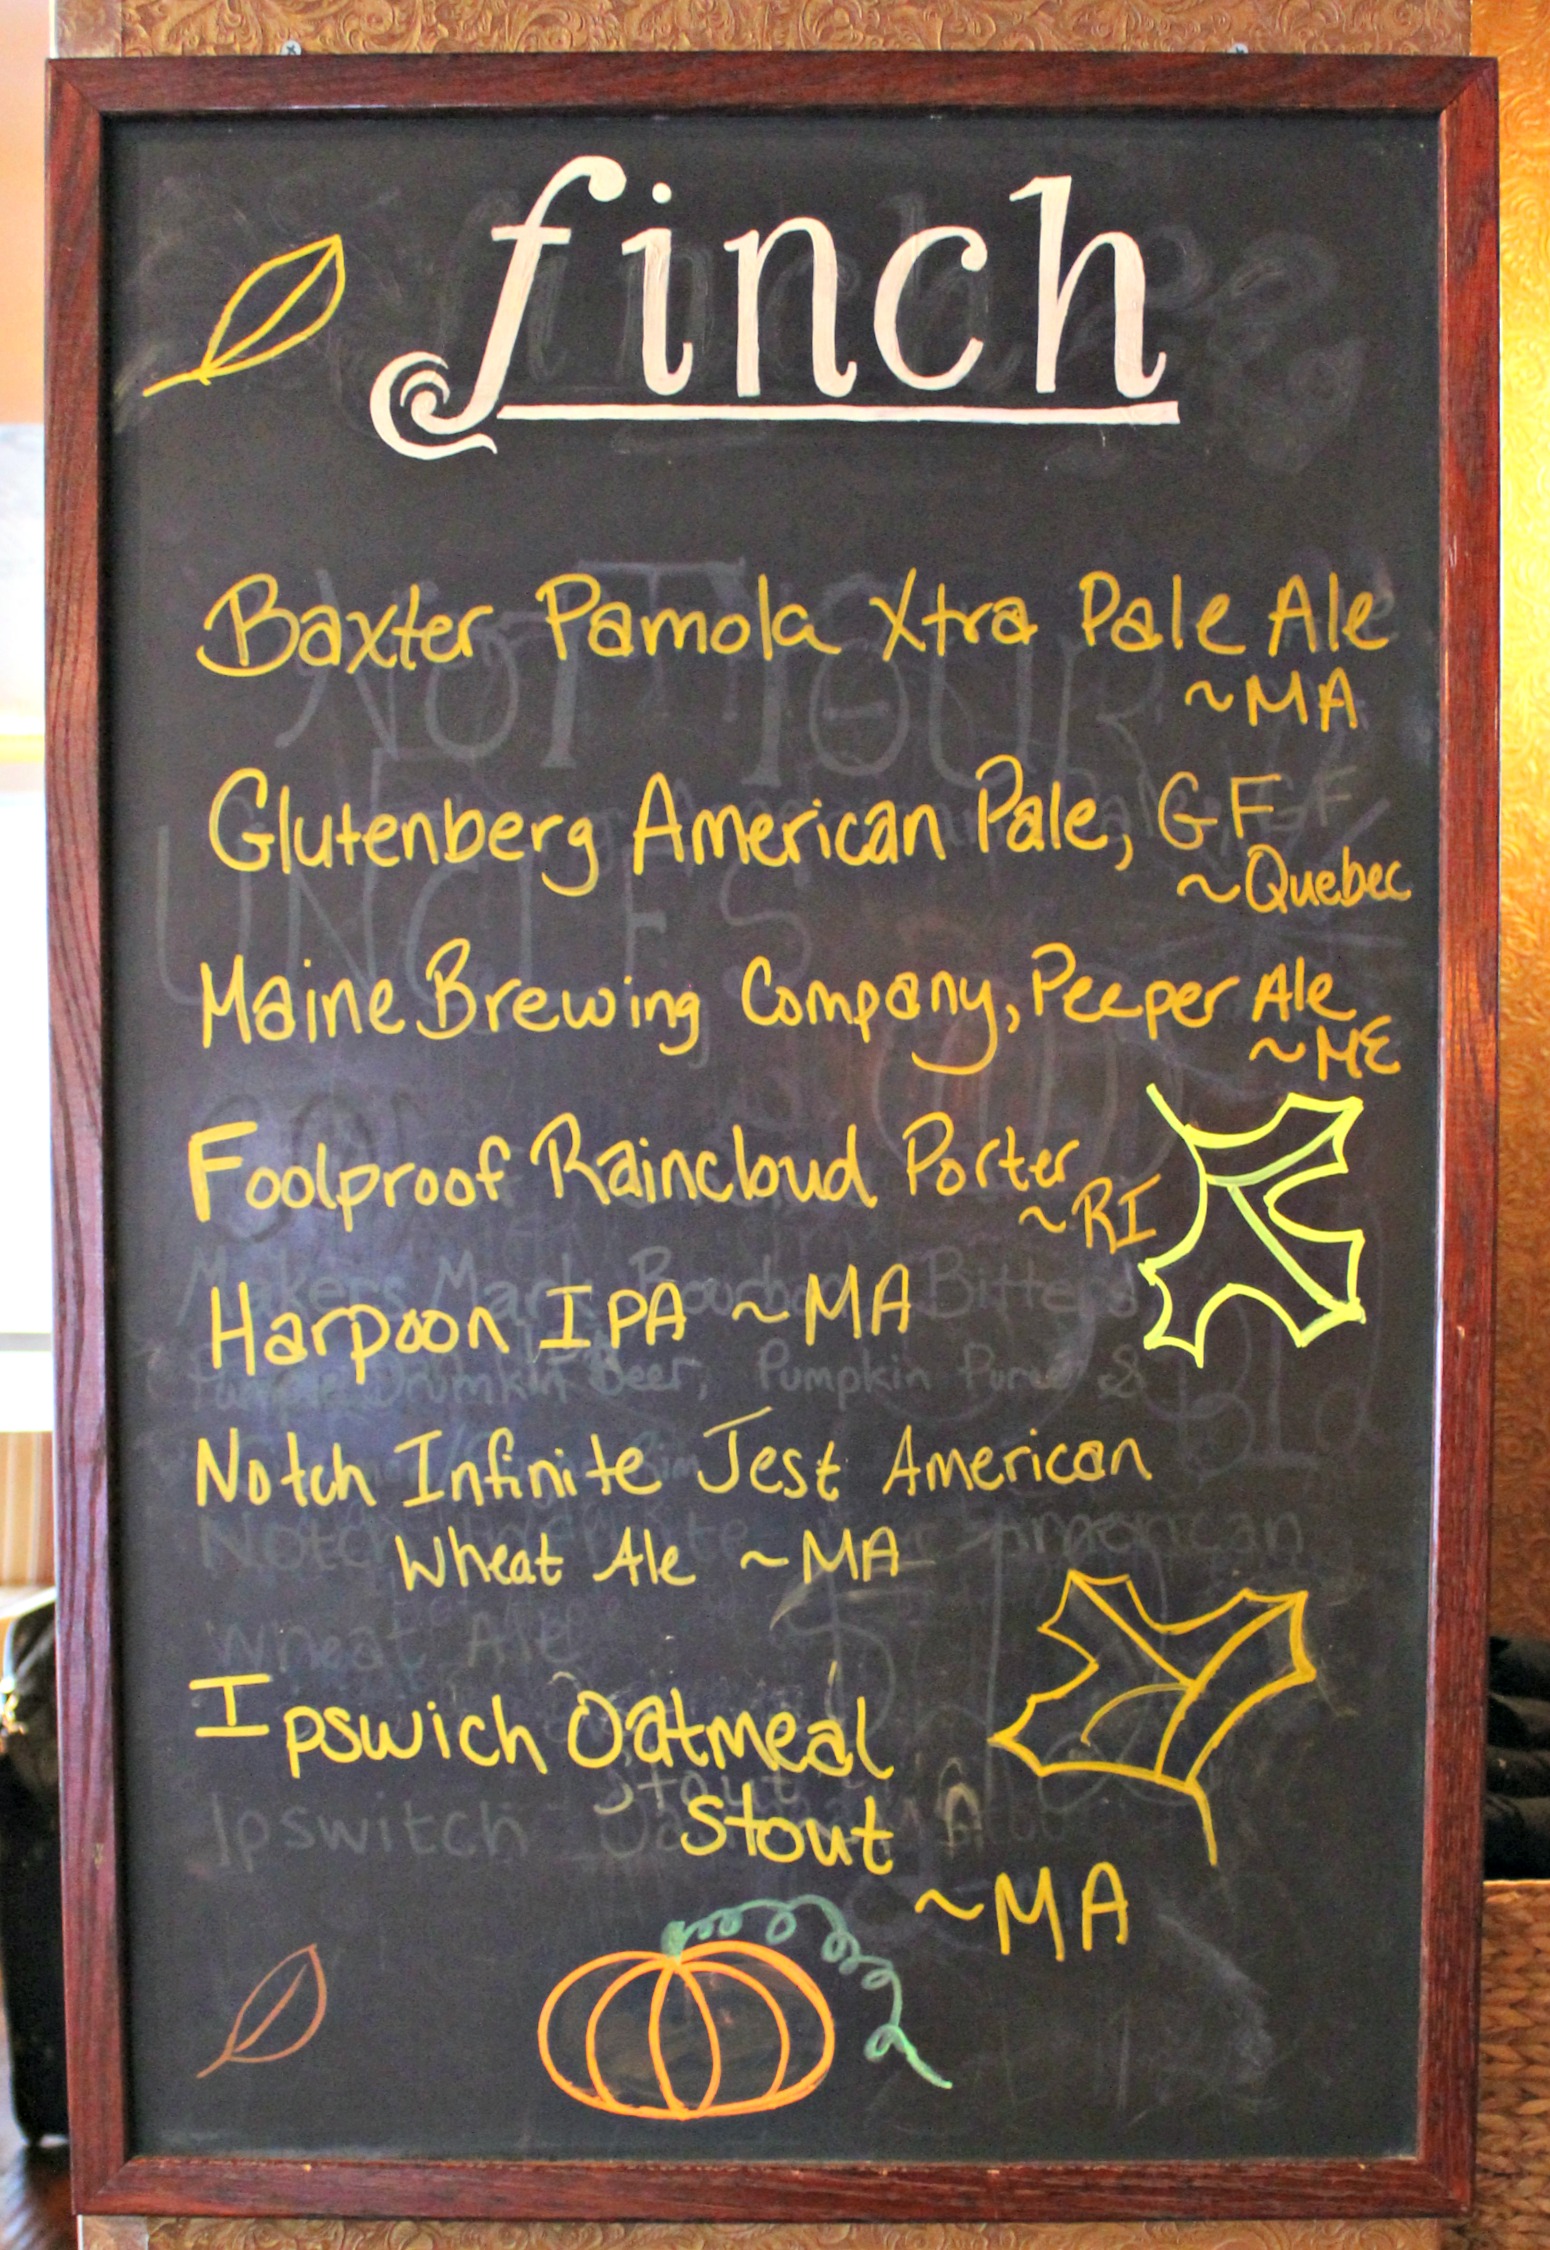 finch
Baxter Pamola Xtra Pale Ale
~MA
Glutenberg American Pale, GF
~Quebec
Maine Brewing Company, Peeper Ale
~ME
Foolproof Raincloud Porter
~RI
Harpoon IPA ~MA
Notch Infinite Jest American
Wheat Ale ~MA
Ipswich Oatmeal
Stout
~MA